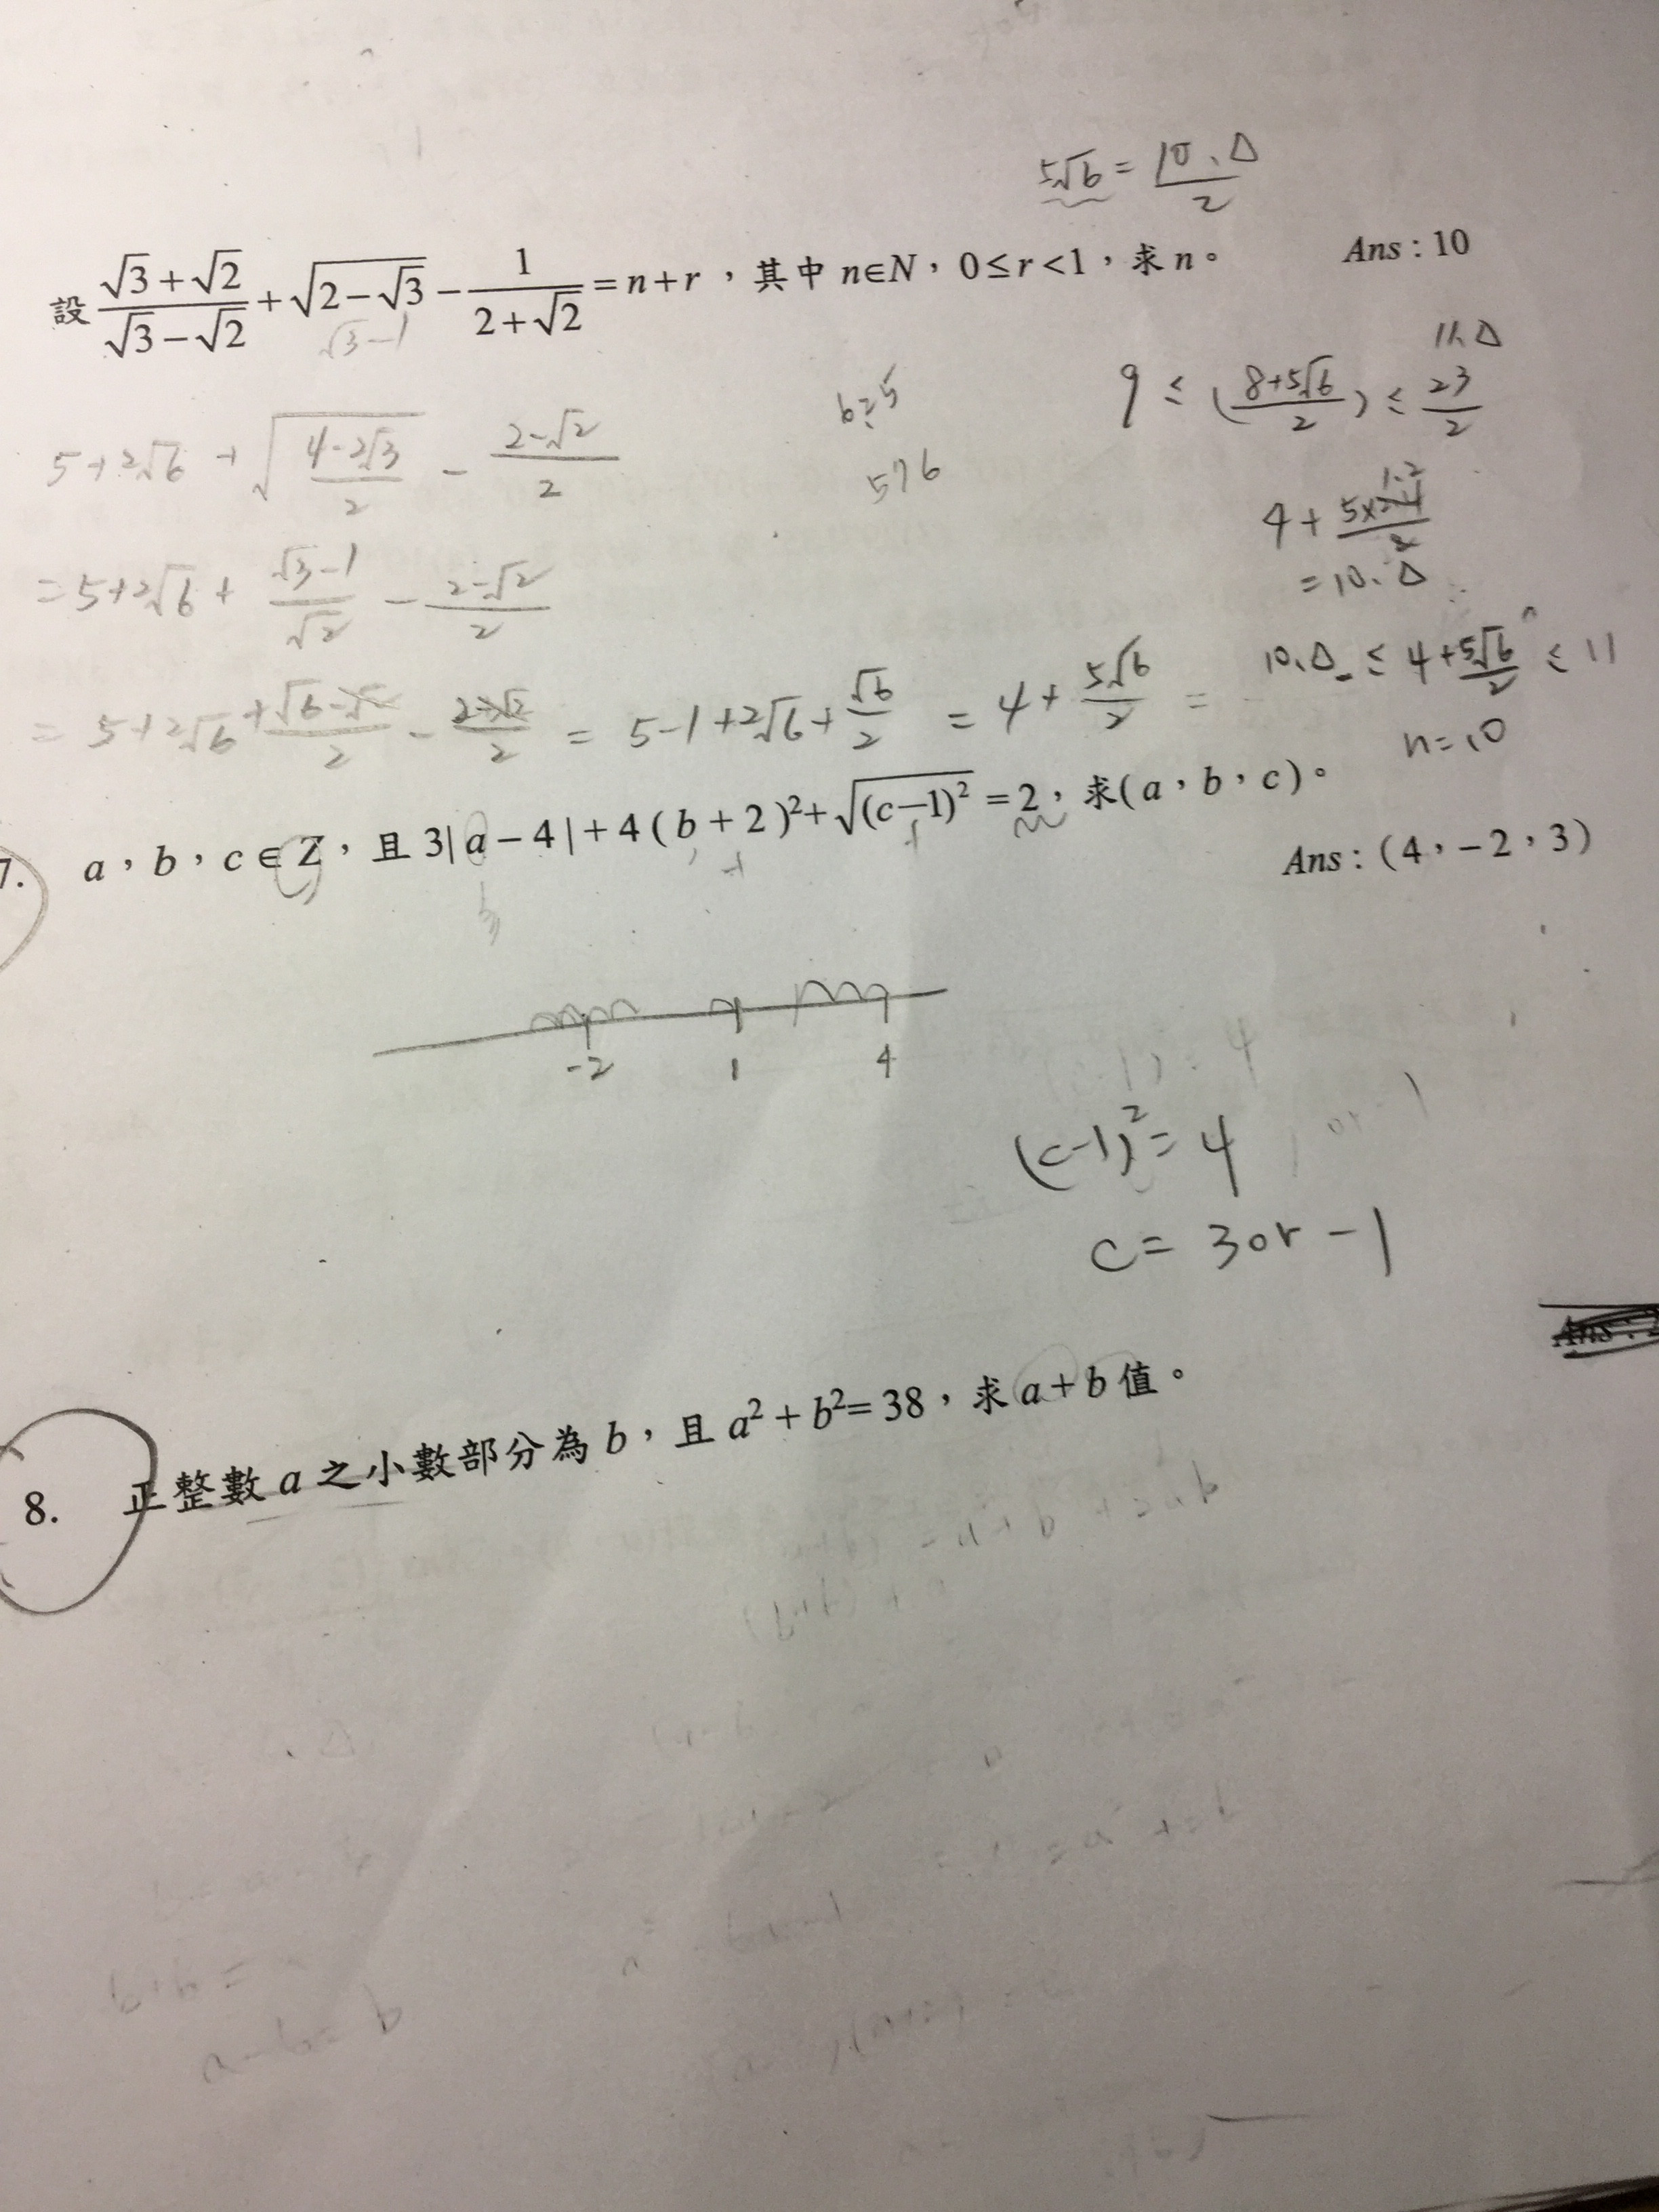 5√6 = 10.△/2
設 (√3+√2)/(√3−√2) + √(2−√3) − 1/(2+√2) = n+r，其中 n∈N，0≤r<1，求 n。 Ans : 10
√3−1
11.△
9 ≤ ((8+5√6)/2) ≤ 23/2
5+2√6 + √((4−2√3)/2) − (2−√2)/2
576
4 + 5×2.4/2
1.2
= 10.△
= 5+2√6 + (√3−1)/√2 − (2−√2)/2
10.△ ≤ 4+5√6/2 ≤ 11
= 5+2√6 + (√6−√2)/2 − (2−√2)/2 = 5−1+2√6+√6/2 = 4+5√6/2 =
n=10
7. a，b，c∈Z，且 3|a−4|+4(b+2)²+√(c−1)² =2，求(a，b，c)。
Ans : (4，−2，3)
-2 1 4
(c-1)²=4
c= 3or -1
Ans :
8. 正整數 a 之小數部分為 b，且 a²+b²=38，求 a+b 值。